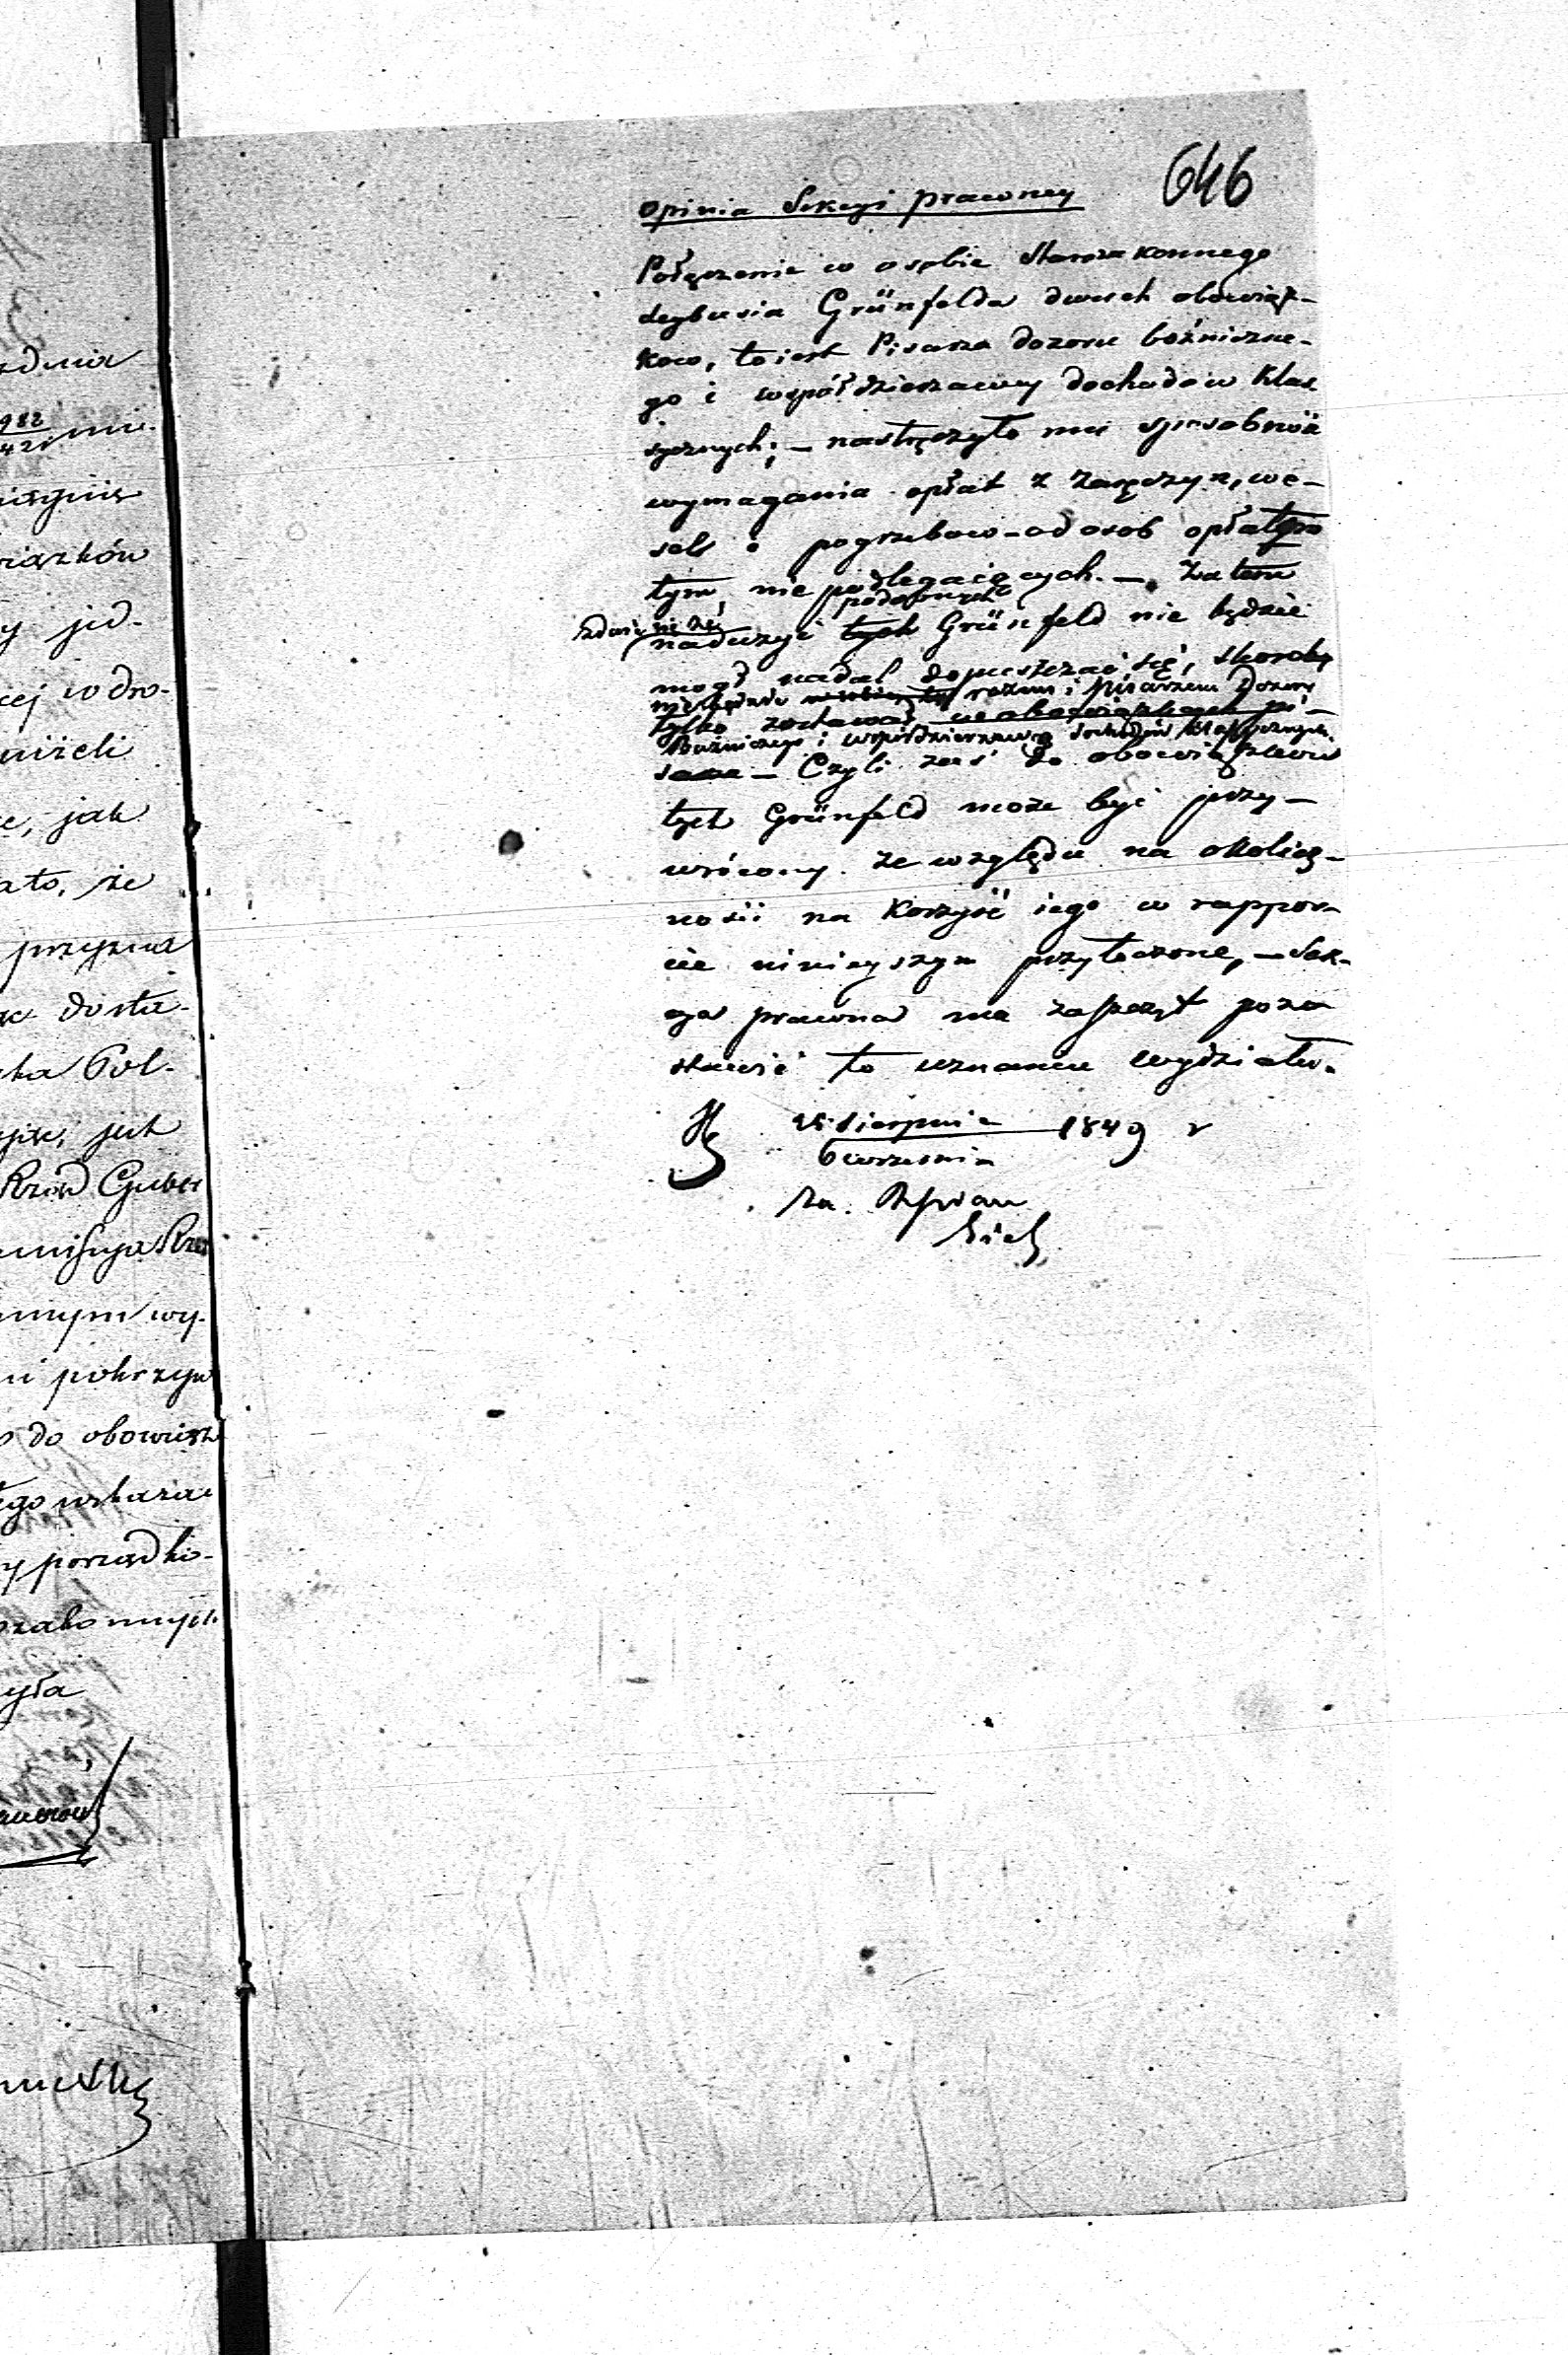 646
Opinia Sekcyi prawney
Połączenie w osobie Starozakonnego
Leybusia Grünfelda dwuch obowiąz-
kow, to iest Pisarza dozoru bóżniczne-
go i współdzierżawcy dochodów Klas
sycznych; – nastręczyło mu sposobność
wymagania opłat z zaręczyn, we-
sel i pogrzebow – od osob opłatom
tym nie podlegaiących. – Zatem
zdaie się że podobnych
nadużyć tych Grünfeld nie będzie
mogł nadal dopuszczać się, skoroby
nie będzie razem i pisarzem Dozoru
tylko zostawał w obowiązkach pi-
Bużniczego i współdzierżawcą dochodów klassycznych.
sarza – Czyli zaś do obowiązków
tych Grünfeld może być przy-
wrócony ze względu na okolicz-
ności na korzyść iego w rappor-
cie ninieyszym przytoczone, – Sek-
cya prawna ma zaszczyt pozo
stawić to uznaniu wydziału.
25 Sierpnia 1849 r
6 września
zdnia
982
421
iązków
y jed-
cej w dro-
niżeli
e, jak
ato, że
przyzna
dosta-
ka Pol-
jak
Rząd Guber
nym wy-
ni pokrzyw
do obowiązk
ego wskaza
y porządko-
ozakonnych
yła